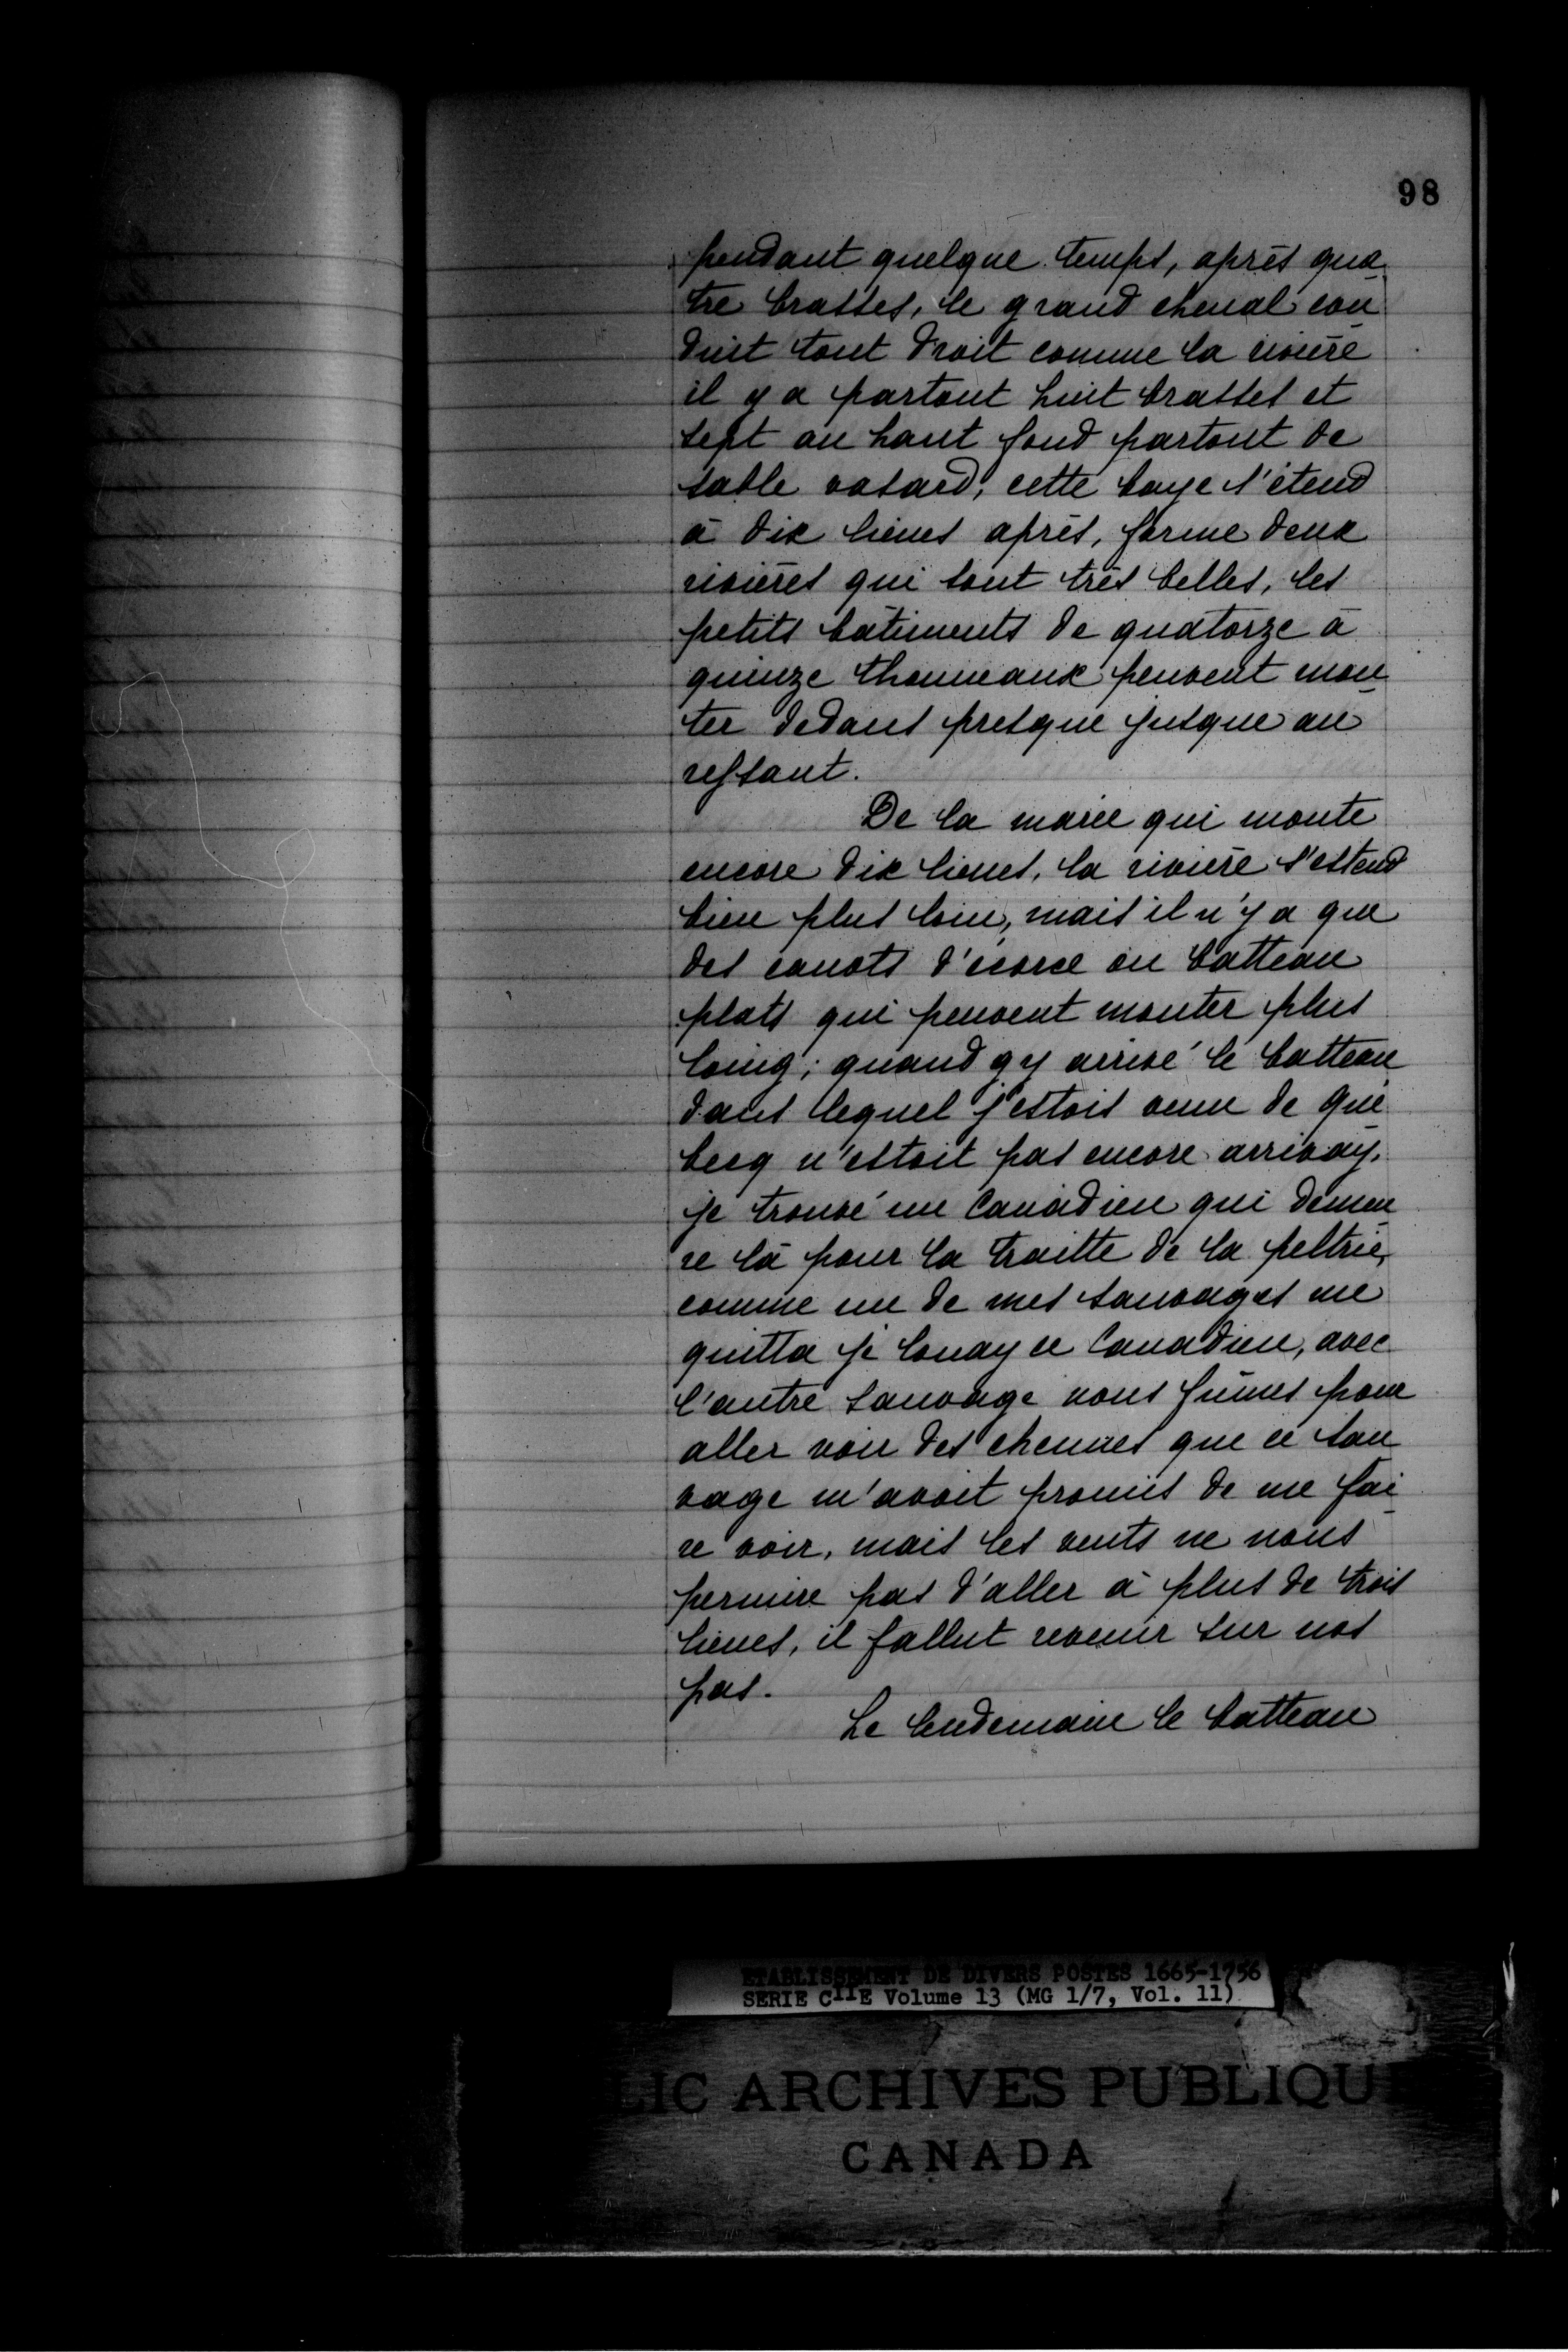 98
pendant quelque temps, après qua-
tre brasses, le grand chenal con-
duit tout droit comme la rivière
il y a partout huit brasses et
sept au haut fond partout de
sable vasard; cette baye s'étend
à dix lieues après, forme deux
rivières qui sont très belles, les
petits bâtiments de quatorze à
quinze thonneaux peuvent mon-
ter dedans presque jusque au
restant.
De la marée qui monte
encore dix lieues, la rivière s'estend
bien plus loin, mais il n'y a que
des canots d'écorce ou batteau
plats qui peuvent monter plus
loing; quand gy arrivé le batteau
dans lequel j'estois venu de Qué-
becq n'estoit pas encore arrivay,
je trouvé un Canadien qui demeu-
re là pour la traitte de la peltrie,
comme un de mes sauvages me
quitta je louay ce Canadien, avec
l'autre sauvage nous fûmes pour
aller voir des chennes que ce sau
vage m'avoit promis de me fai-
re voir, mais les vents ne nous
permire pas d'aller à plus de trois
lieues, il fallut revenir sur nos
pas.
Le lendemain le batteau
ETABLISSEMENT DE DIVERS POSTES 1665-1756
SERIE CIIE Volume 13 (MG 1/7, Vol. 11)
LIC ARCHIVES PUBLIQUE
CANADA